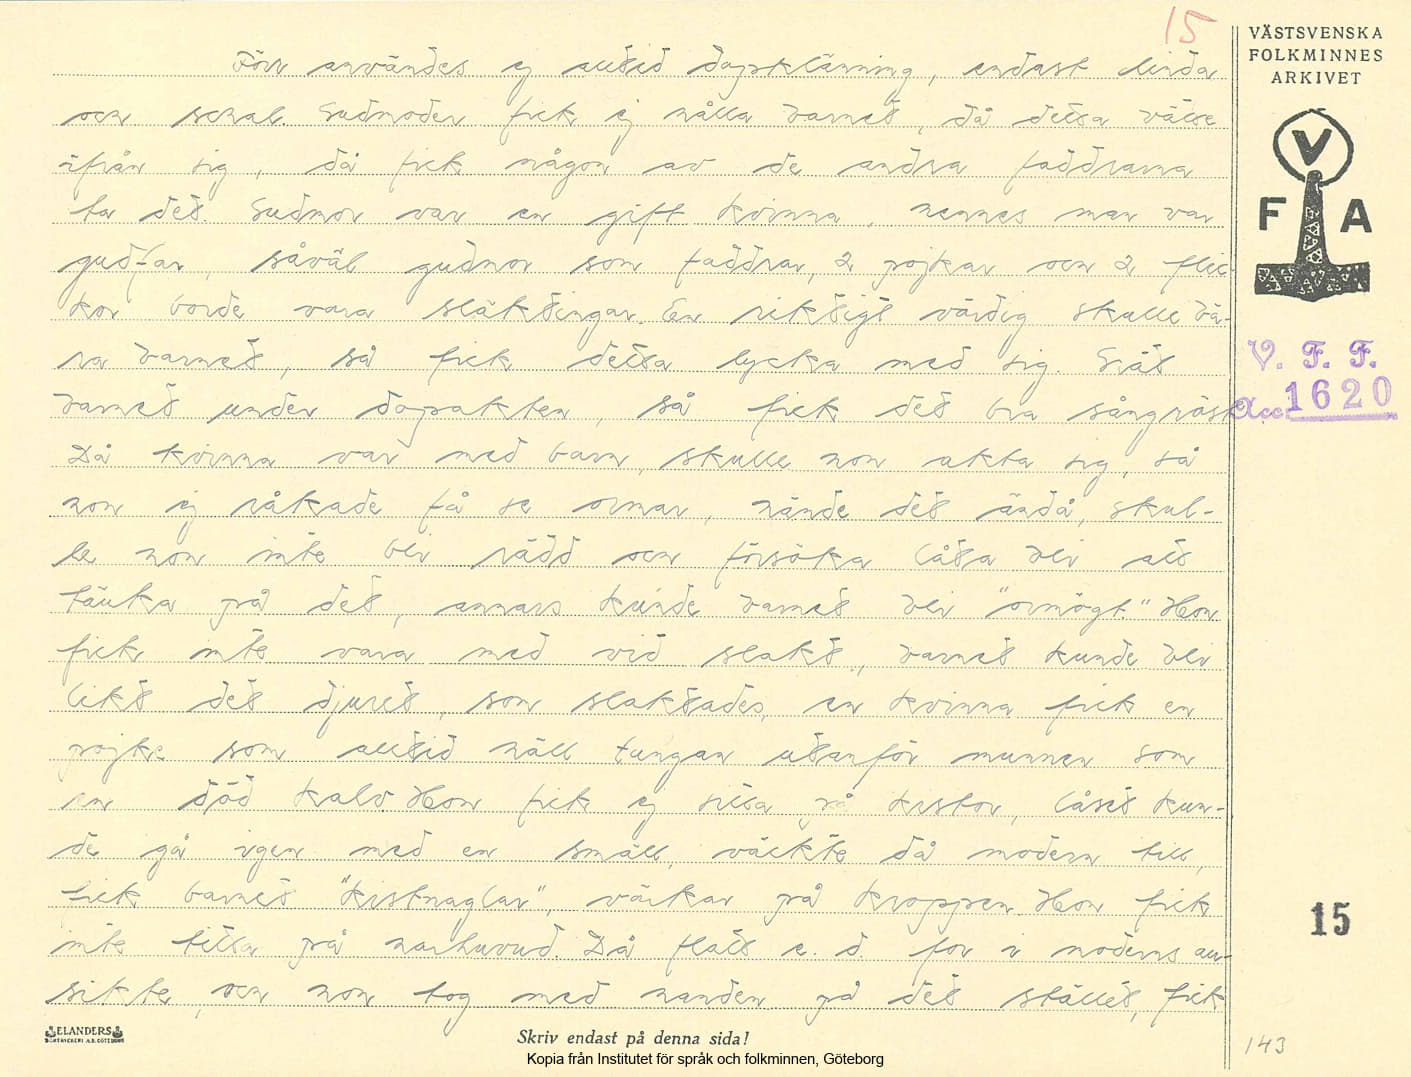 15
VÄSTSVENSKA
FOLKMINNES
ARKIVET
V
F A
Förr användes ej alltid dopklänning, endast linda
och schal. Gudmoder fick ej hålla barnet, då detta vätte
ifrån sig, då fick någon av de andra faddrarna
ta det. Gudmor var en gift kvinna, hennes man var
gudfar, såväl gudmor som faddrar, 2 pojkar och 2 flic-
kor borde vara släktingar. En riktigt värdig skulle bä-
ra barnet, så fick detta lycka med sig. Grät
barnet under dopakten, så fick det bra sångröst.
Då kvinna var med barn, skulle hon akta sig, så
hon ej råkade få se ormar, hände det ändå, skul-
le hon inte bli rädd och försöka låta bli att
tänka på det, annars kunde barnet bli "ormögt." Hon
fick inte vara med vid slakt, barnet kunde bli
likt det djuret, som slaktades, en kvinna fick en
pojke som alltid häll tungan utanför munnen som
en död kalv. Hon fick ej titta på kistor, låset kun-
de gå igen med en smäll, väckte då modern till,
fick barnet "kistnaglar", värkar på kroppen. Hon fick
inte titta på harhuvud. Då flats e. d. for i moderns an-
sikte, och hon tog med handen på det stället, fick
V. F. F.
Acc: 1620
15
ELANDERS
BOKTRYCKERI A.B. GÖTEBORG
Skriv endast på denna sida!
143
Kopia från Institutet för språk och folkminnen, Göteborg